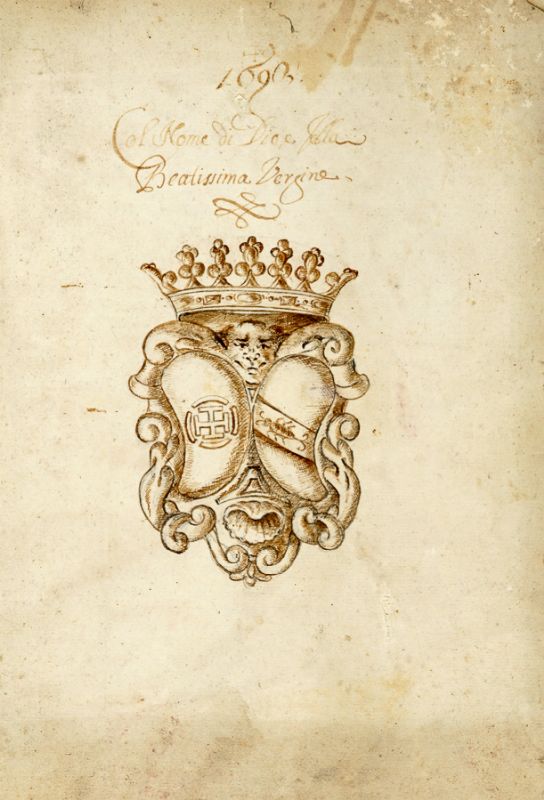 1690
Col Nome di Dio e della
Beatissima Vergine